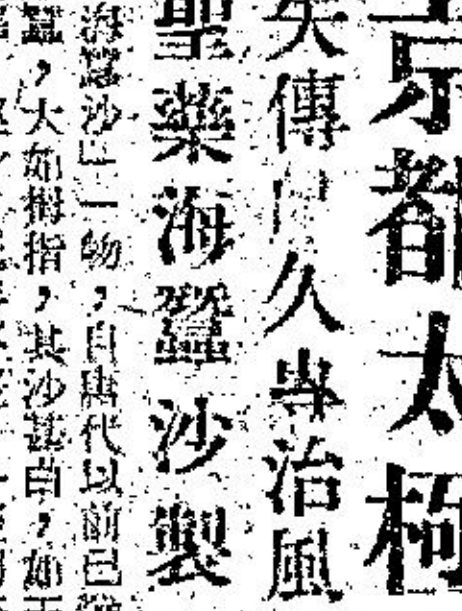 京都太極
失傳久專治風
聖藥海蠶沙製
海蠶沙」一物,自唐代以前已
蠶,大如拇指,其沙甚白,如玉